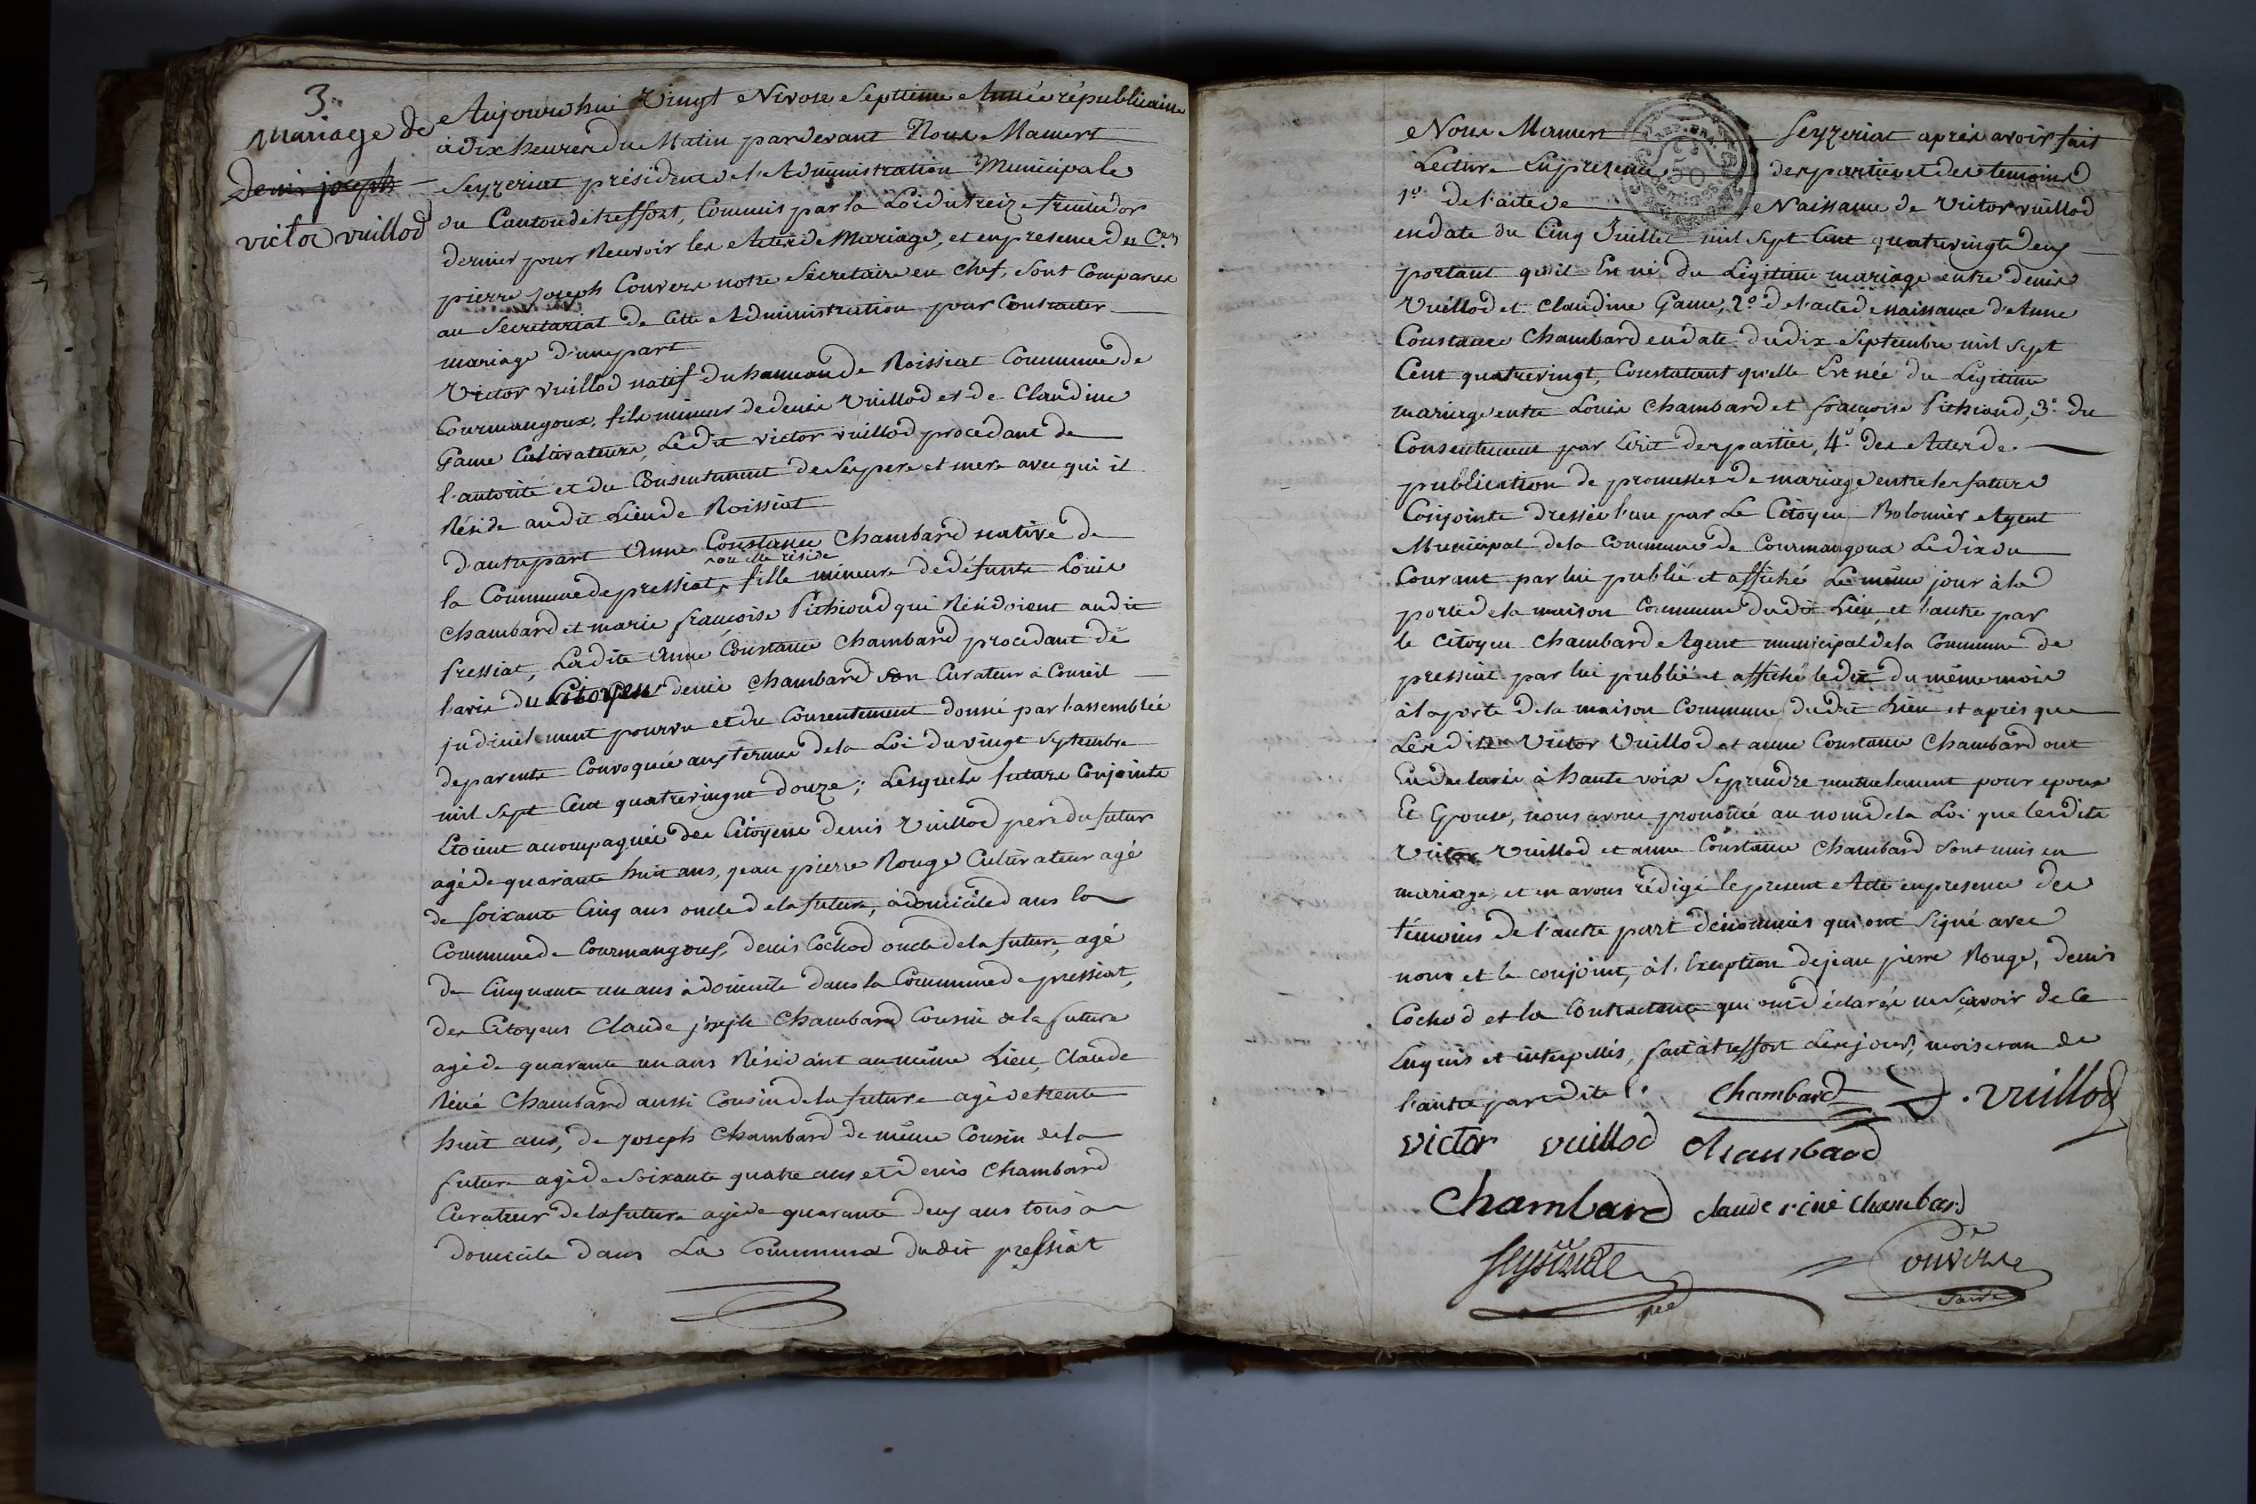 3.
Mariage de
Denis joseph
victor vuillod
Aujourdhui Vingt Nivose Septieme Année républicaine
à dix heures du Matin pardevant Nous Mamert
Seyzeriat président de l'Administration Municipale
du Canton de treffort, Commis par la Loi du treize fructidor
dernier pour Recevoir les Actes de Mariage, et en presence du Cen
pierre joseph Couvers notre Secretaire en chef, sont Comparus
au Secretariat de Cette Administration pour Contracter
mariage d'une part
Victor Vuillod natif du hameau de Roissiat Commune de
Courmangoux, fils mineur de denis Vuillod et de Claudine
Game Cultivateurs, Ledit victor vuillod procedant de
l'autorité et du Consentement de Ses pere et mere avec qui il
Réside audit Lieu de Roissiat
d'autre part Anne Constance Chambard native de
ou elle réside
la Commune de pressiat, fille mineure de défunts Louis
Chambard et marie françoise Pithioud qui Résidoient audit
Pressiat, Ladite Anne Constance Chambard procedant de
l'avis du Citoyen denis Chambard Son Curateur à Conseil
judiciel ment pourvu et du Consentement donné par l'assemblée
de parents Convoquée aux termes de la Loi du vingt Septembre
mil Sept Cent quatrevingt douze; Lesquels futurs Conjoints
Etoient acompagnés des Citoyens denis Vuillod pere du futur
agé de quarante huit ans, jean pierre Rouge Cultivateur agé
de Soixante Cinq ans oncle de la future, à domicile dans la
Commune de Courmangoux, denis Cochod oncle de la future, agé
de Cinquante un ans à domicile dans la Commune de pressiat,
des Citoyens Claude joseph Chambard Cousin de la future
agé de quarante un ans Résidant au même Lieu, Claude
Réné Chambard aussi Cousin de la future agé de trente
huit ans, de joseph Chambard de même Cousin de la
future agé de Soixante quatre ans et denis Chambard
Curateur de la future agé de quarante deux ans tous à
domicile dans La Commune dudit pressiat
Nous Mamert Seyzeriat après avoir fait
Lecture En presence des parties et des temoins
1o. de l'acte de Naissance de Victor vuillod
en date du Cinq Juillet mil Sept Cent quatrevingt deux
portant qu'il Est né du Légitime mariage entre denis
Vuillod et Claudine Game, 2o. de l'acte de naissance d'Anne
Constance Chambard en date du dix Septembre mil Sept
Cent quatrevingt, Constatant qu'elle Est née du Légitime
mariage entre Louis Chambard et françoise Pithioud, 3o. du
Consentement par Ecrit des parties, 4o. des Actes de
publication de promesses de mariage entre les futurs
Conjoints dressées l'une par Le Citoyen Bolomier Agent
Municipal de la Commune de Courmangoux Le dix du
Courant par lui publié et affiché Le même jour à la
porte de la maison Commune dudit Lieu, et l'autre par
le Citoyen Chambard Agent municipal de la Commune de
pressiat par lui publié et affiché le dix du même mois
à la porte de la maison Commune dudit Lieu et après que
Lesdits Victor Vuillod et anne Constance Chambard ont
Eu declaré à haute voix Se prendre mutuelement pour epoux
Et Epouse, nous avons prononcé au nom de la Loi que lesdits
Victor Vuillod et anne Constance Chambard sont unis en
mariage, et en avons rédigé le present Acte en presence des
témoins de l'autre part dénommés qui ont Signé avec
nous et le conjoint, à l'Exeption de jean pierre Rouge, denis
Cochod et la Contractante qui ont déclarés ne Sçavoir de Ce
Enquis et interpellés, fait à treffort Les jour, mois et an de
l'autre part dits.
Chambard D. vuillod
victor vuillod Chambard
Chambard claude réné Chambard
Seyzeriat
pdt
Couvers